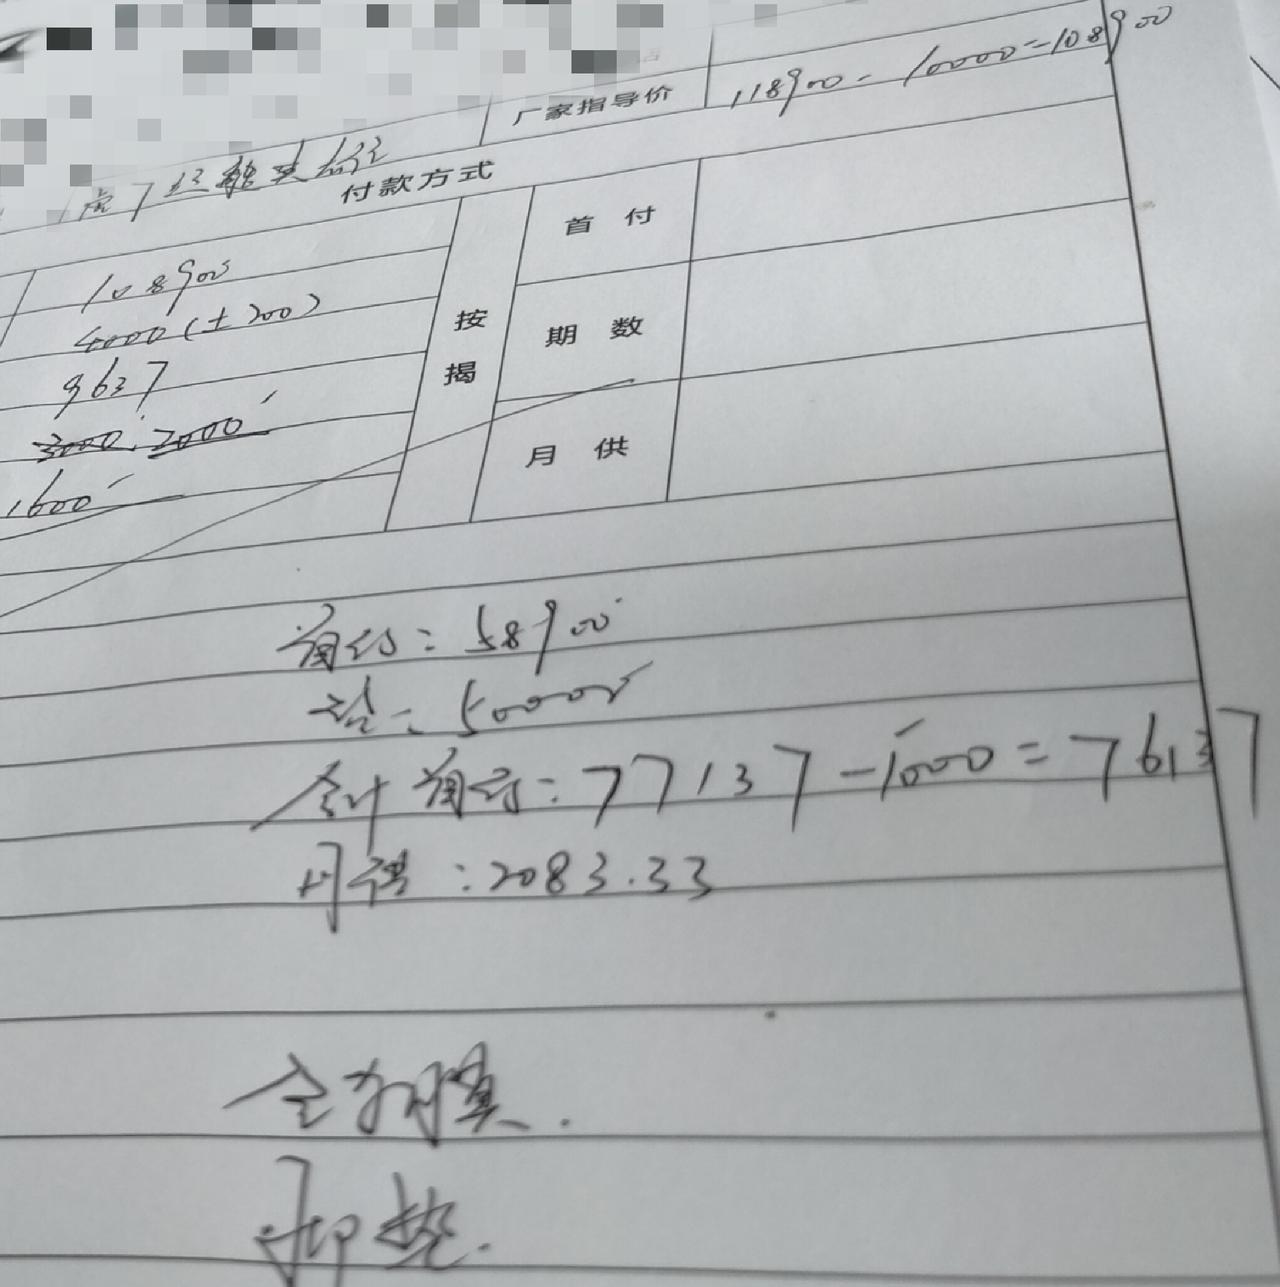 厂家指导价 118900-10000=108900
付款方式
108900
首付
4000(±200)
按揭
期数
9637
3000 2000
月供
1600
首付:58900
贷:50000
合计首付:77137-1000=76137
月供:2083.33
全车膜.
脚垫.